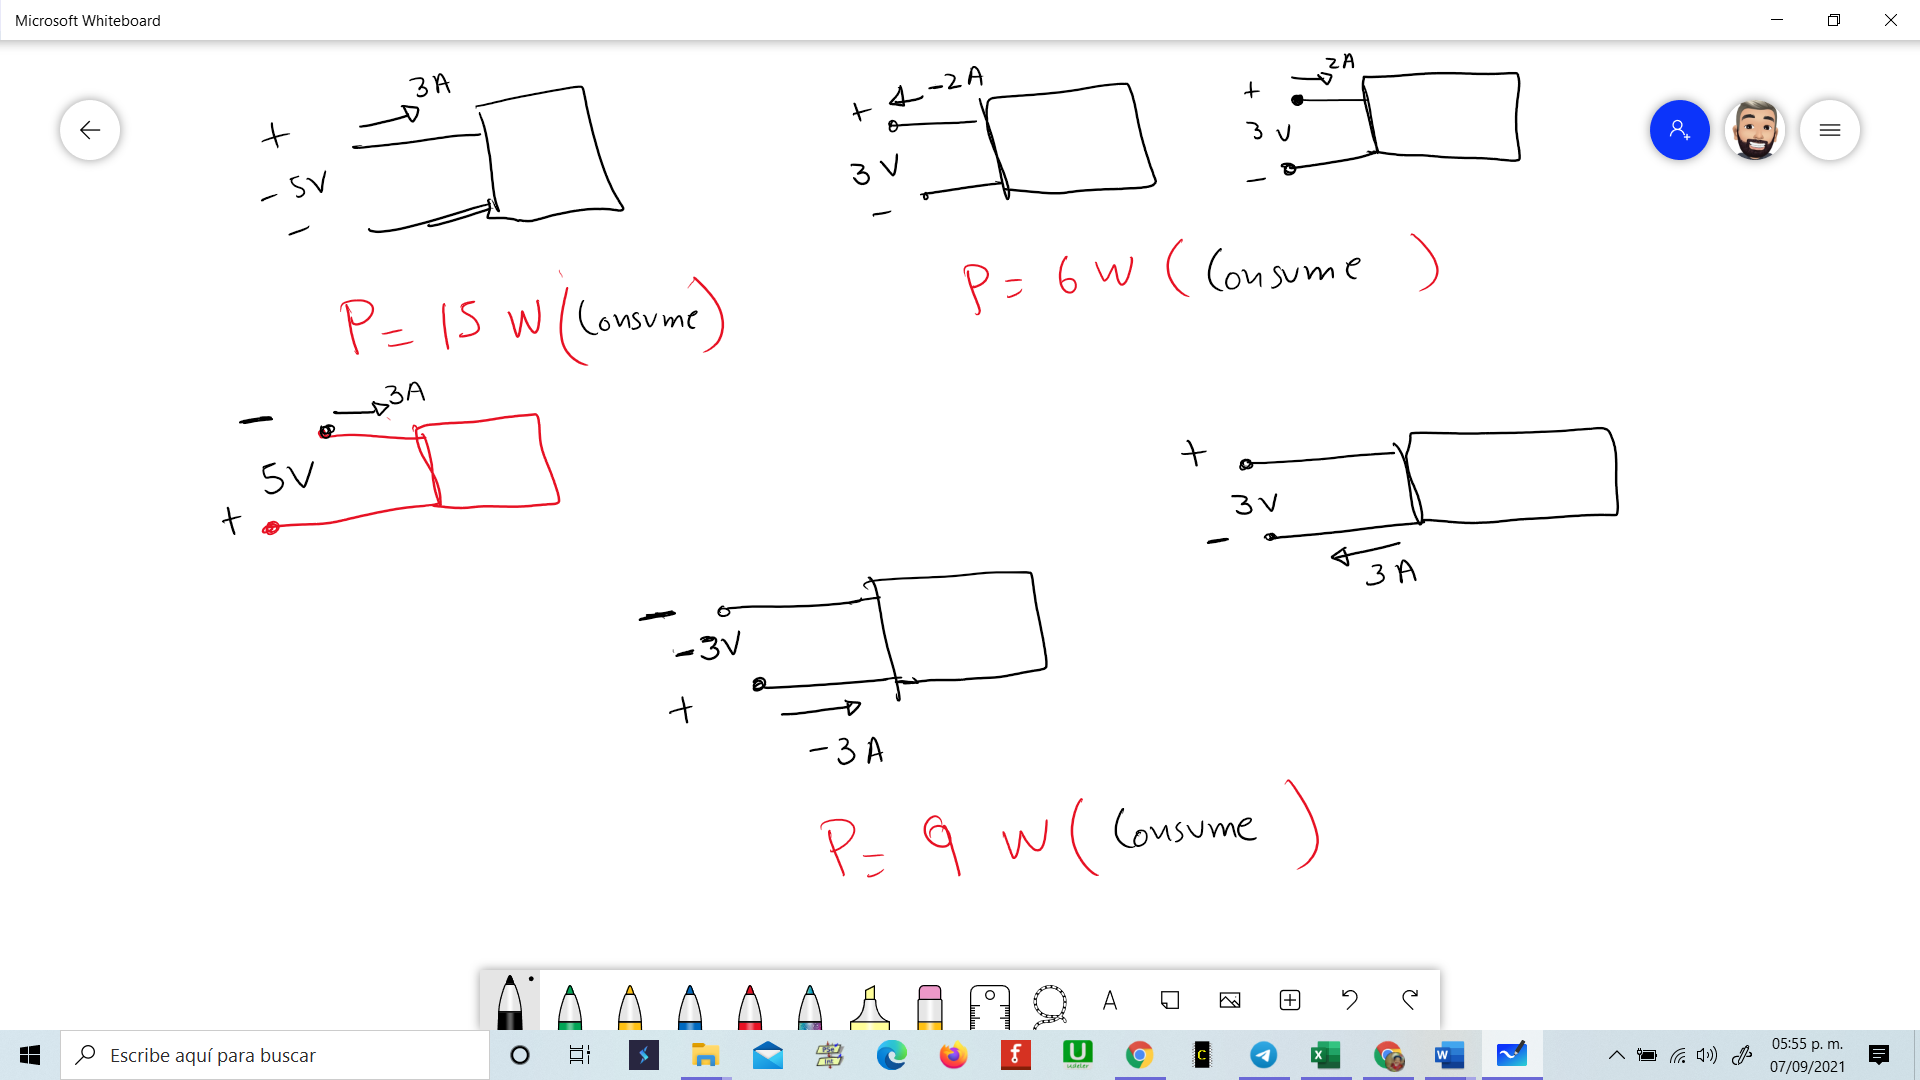 Microsoft Whiteboard
3A
+
- 5V
-
-2A
+
3 V
-
2A
+
3 V
-
P = 15 W (Consume)
P = 6 W (Consume)
3A
-
5V
+
+
3V
-
3A
-
-3V
+
-3A
P = 9 W (Consume)
A
Escribe aquí para buscar
05:55 p. m.
07/09/2021